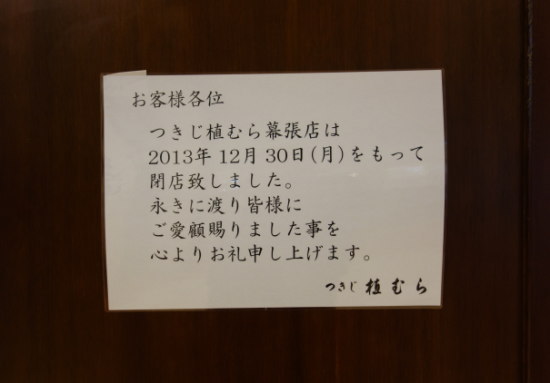 お客様各位
つきじ植むら幕張店は
2013年12月30日(月)をもって
閉店致しました。
永きに渡り皆様に
ご愛顧賜りました事を
心よりお礼申し上げます。
つきじ 植むら